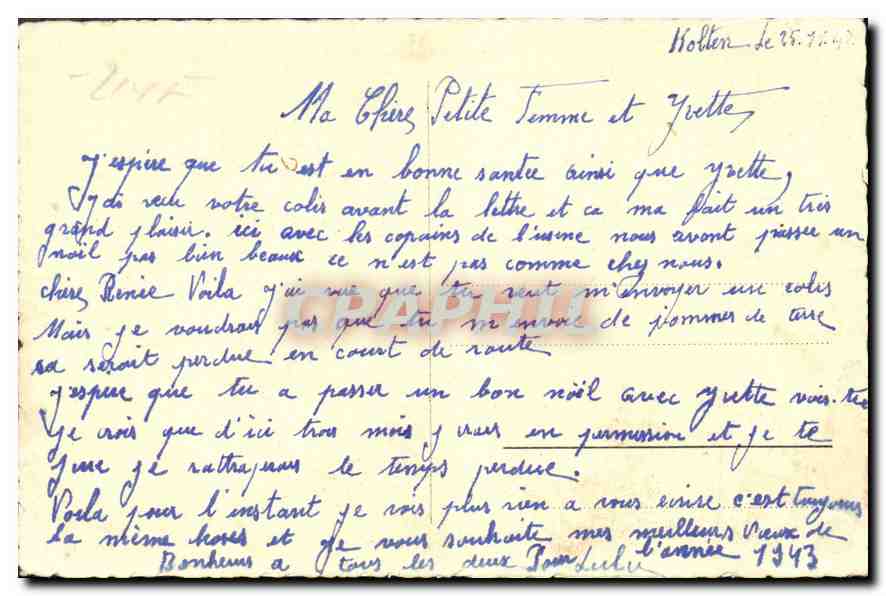 Kolten Le 25.12.42
- 2147
Ma Chère Petite Femme et Yvette,
J'espère que tu est en bonne santée ainsi que Yvette,
J'ai recu votre colis avant la lettre et ca ma fait un très
grand plaisir. ici avec les copains de l'usine nous avont passer un
noïl pas bien beaux ce n'est pas comme chez nous.
chère Renée Voila j'ai vue que tu veut m'envoyer un colis
Mais je voudrais pas que tu m'envoie de pommes de terre
sa serait perdue en court de route
J'espère que tu a passer un bon nöel avec Yvette vois-tu
je crois que d'ici trois mois j'irais en permission et je te
jure je rattraperais le temps perdue.
Voila pour l'instant je vois plus rien a vous ecrire c'est toujours
la même hoses et je vous souhaite mes meilleurs Vœux de
Bonheurs a tous les deux Pour l'année 1943
Lulu
CPAPHIL